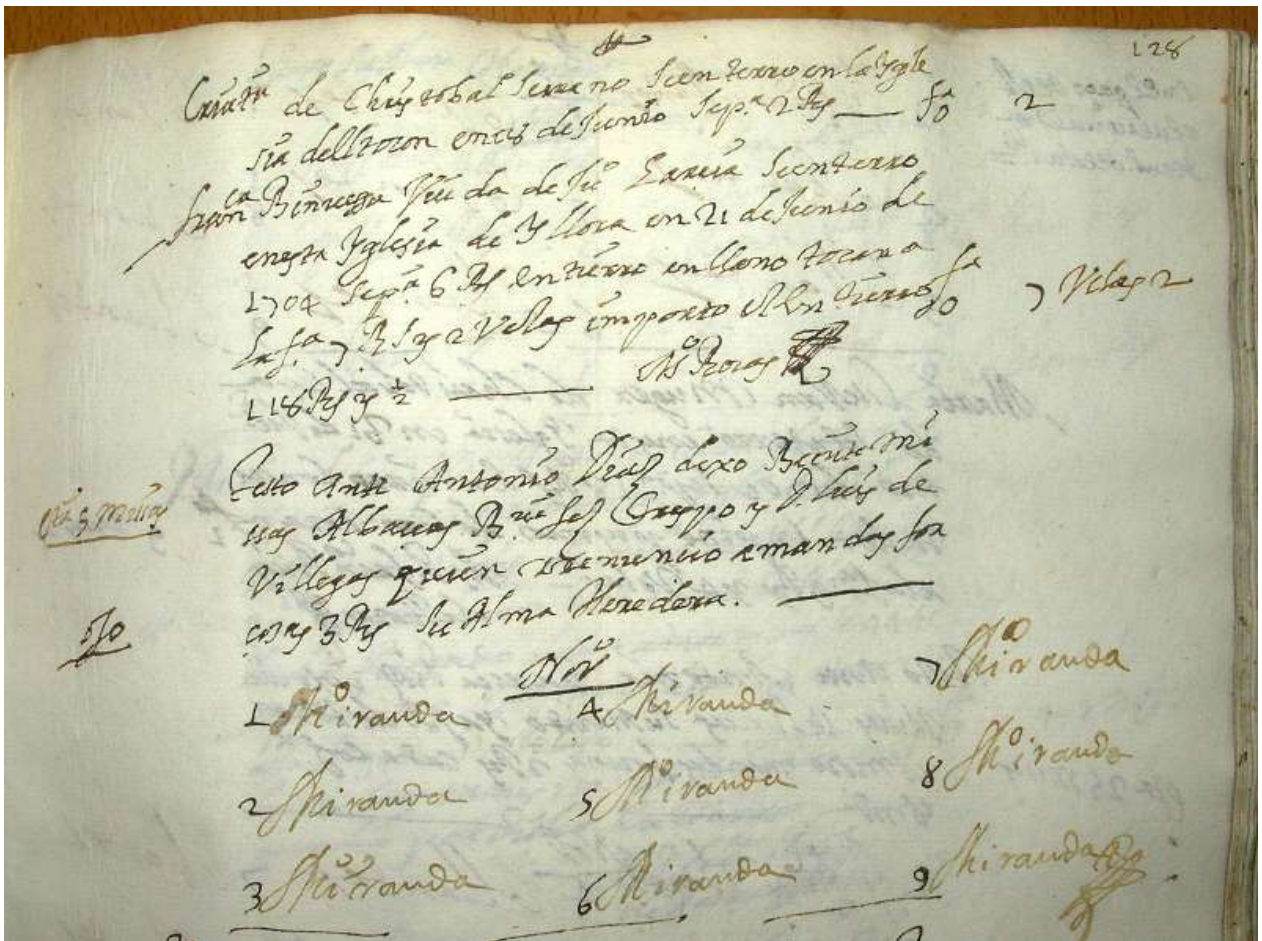 128
Criatu de Christobal Serrano Se enterro en la Ygle
sia del tocon en 18 de Junio Sepª 2 Rs — fª 2
Franca Viuda de Juº Garcia Se enterro
en esta Yglesia de Yllora en 21 de Junio de
1704 Sepª 6 Rs entierro en lleno toca a
la fª 7 Rs y 2 Velas importo el entierro fª 7 Velas 2
118 Rs y ½ — Rojas
Testo ante Antonio Diaz dexo Beinte mi
sas Albaceas Crespo y D. Luis de
Villegas quien renuncio a mandas for
cosas 3 Rs Su Alma Heredera.
Novº
1 Miranda 4 Miranda 7 Miranda
2 Miranda 5 Miranda 8 Miranda
3 Miranda 6 Miranda 9 Miranda